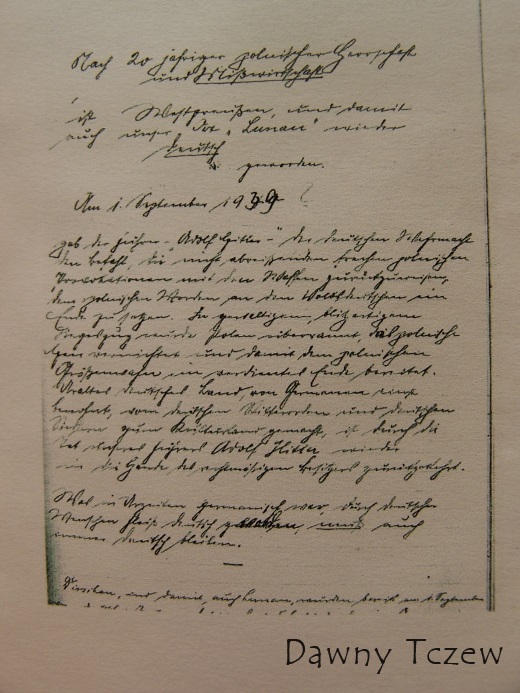 Nach 20 jähriger polnischer Herrschaft
und Mißwirtschaft
ist Westpreußen, und damit
auch unser Ort „Lunau" wieder
deutsch
geworden.
Am 1. September 1939
gab der Führer - Adolf Hitler - der deutschen Wehrmacht
den Befehl, die nicht abreißenden frechen polnischen
Provokationen mit den Waffen zurückzuweisen,
dem polnischen Morden an den Volksdeutschen ein
Ende zu setzen. In gewaltigem, blitzartigem
Siegeszug wurde Polen überrannt, das polnische
Heer vernichtet und damit dem polnischen
Größenwahn ein verdientes Ende bereitet.
Uraltes deutsches Land, von Germanen einst
bewohnt, vom deutschen Ritterorden und deutschen
Siedlern zum Kulturland gemacht, ist durch die
Tat unseres Führers Adolf Hitler wieder
in die Hände des rechtmäßigen Besitzers zurückgekehrt.
Was in Urzeiten germanisch war, durch deutscher
Menschen Fleiß deutsch geworden, muß auch
immer deutsch bleiben.
Dirschau, und damit, auch Lunau, wurden bereits am 1. September
Dawny Tczew